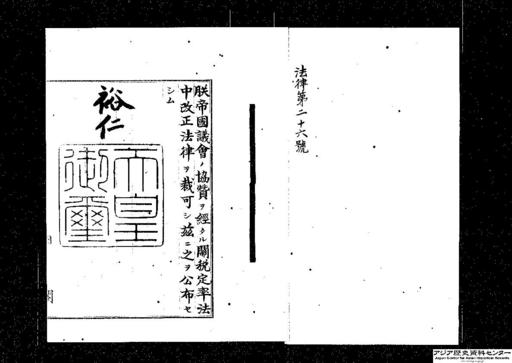 法律第二十六號
朕帝國議會ノ協贊ヲ經タル關税定率法
中改正法律ヲ裁可シ茲ニ之ヲ公布セ
シム
裕仁
天皇
御璽
アジア歴史資料センター
Japan Center for Asian Historical Records